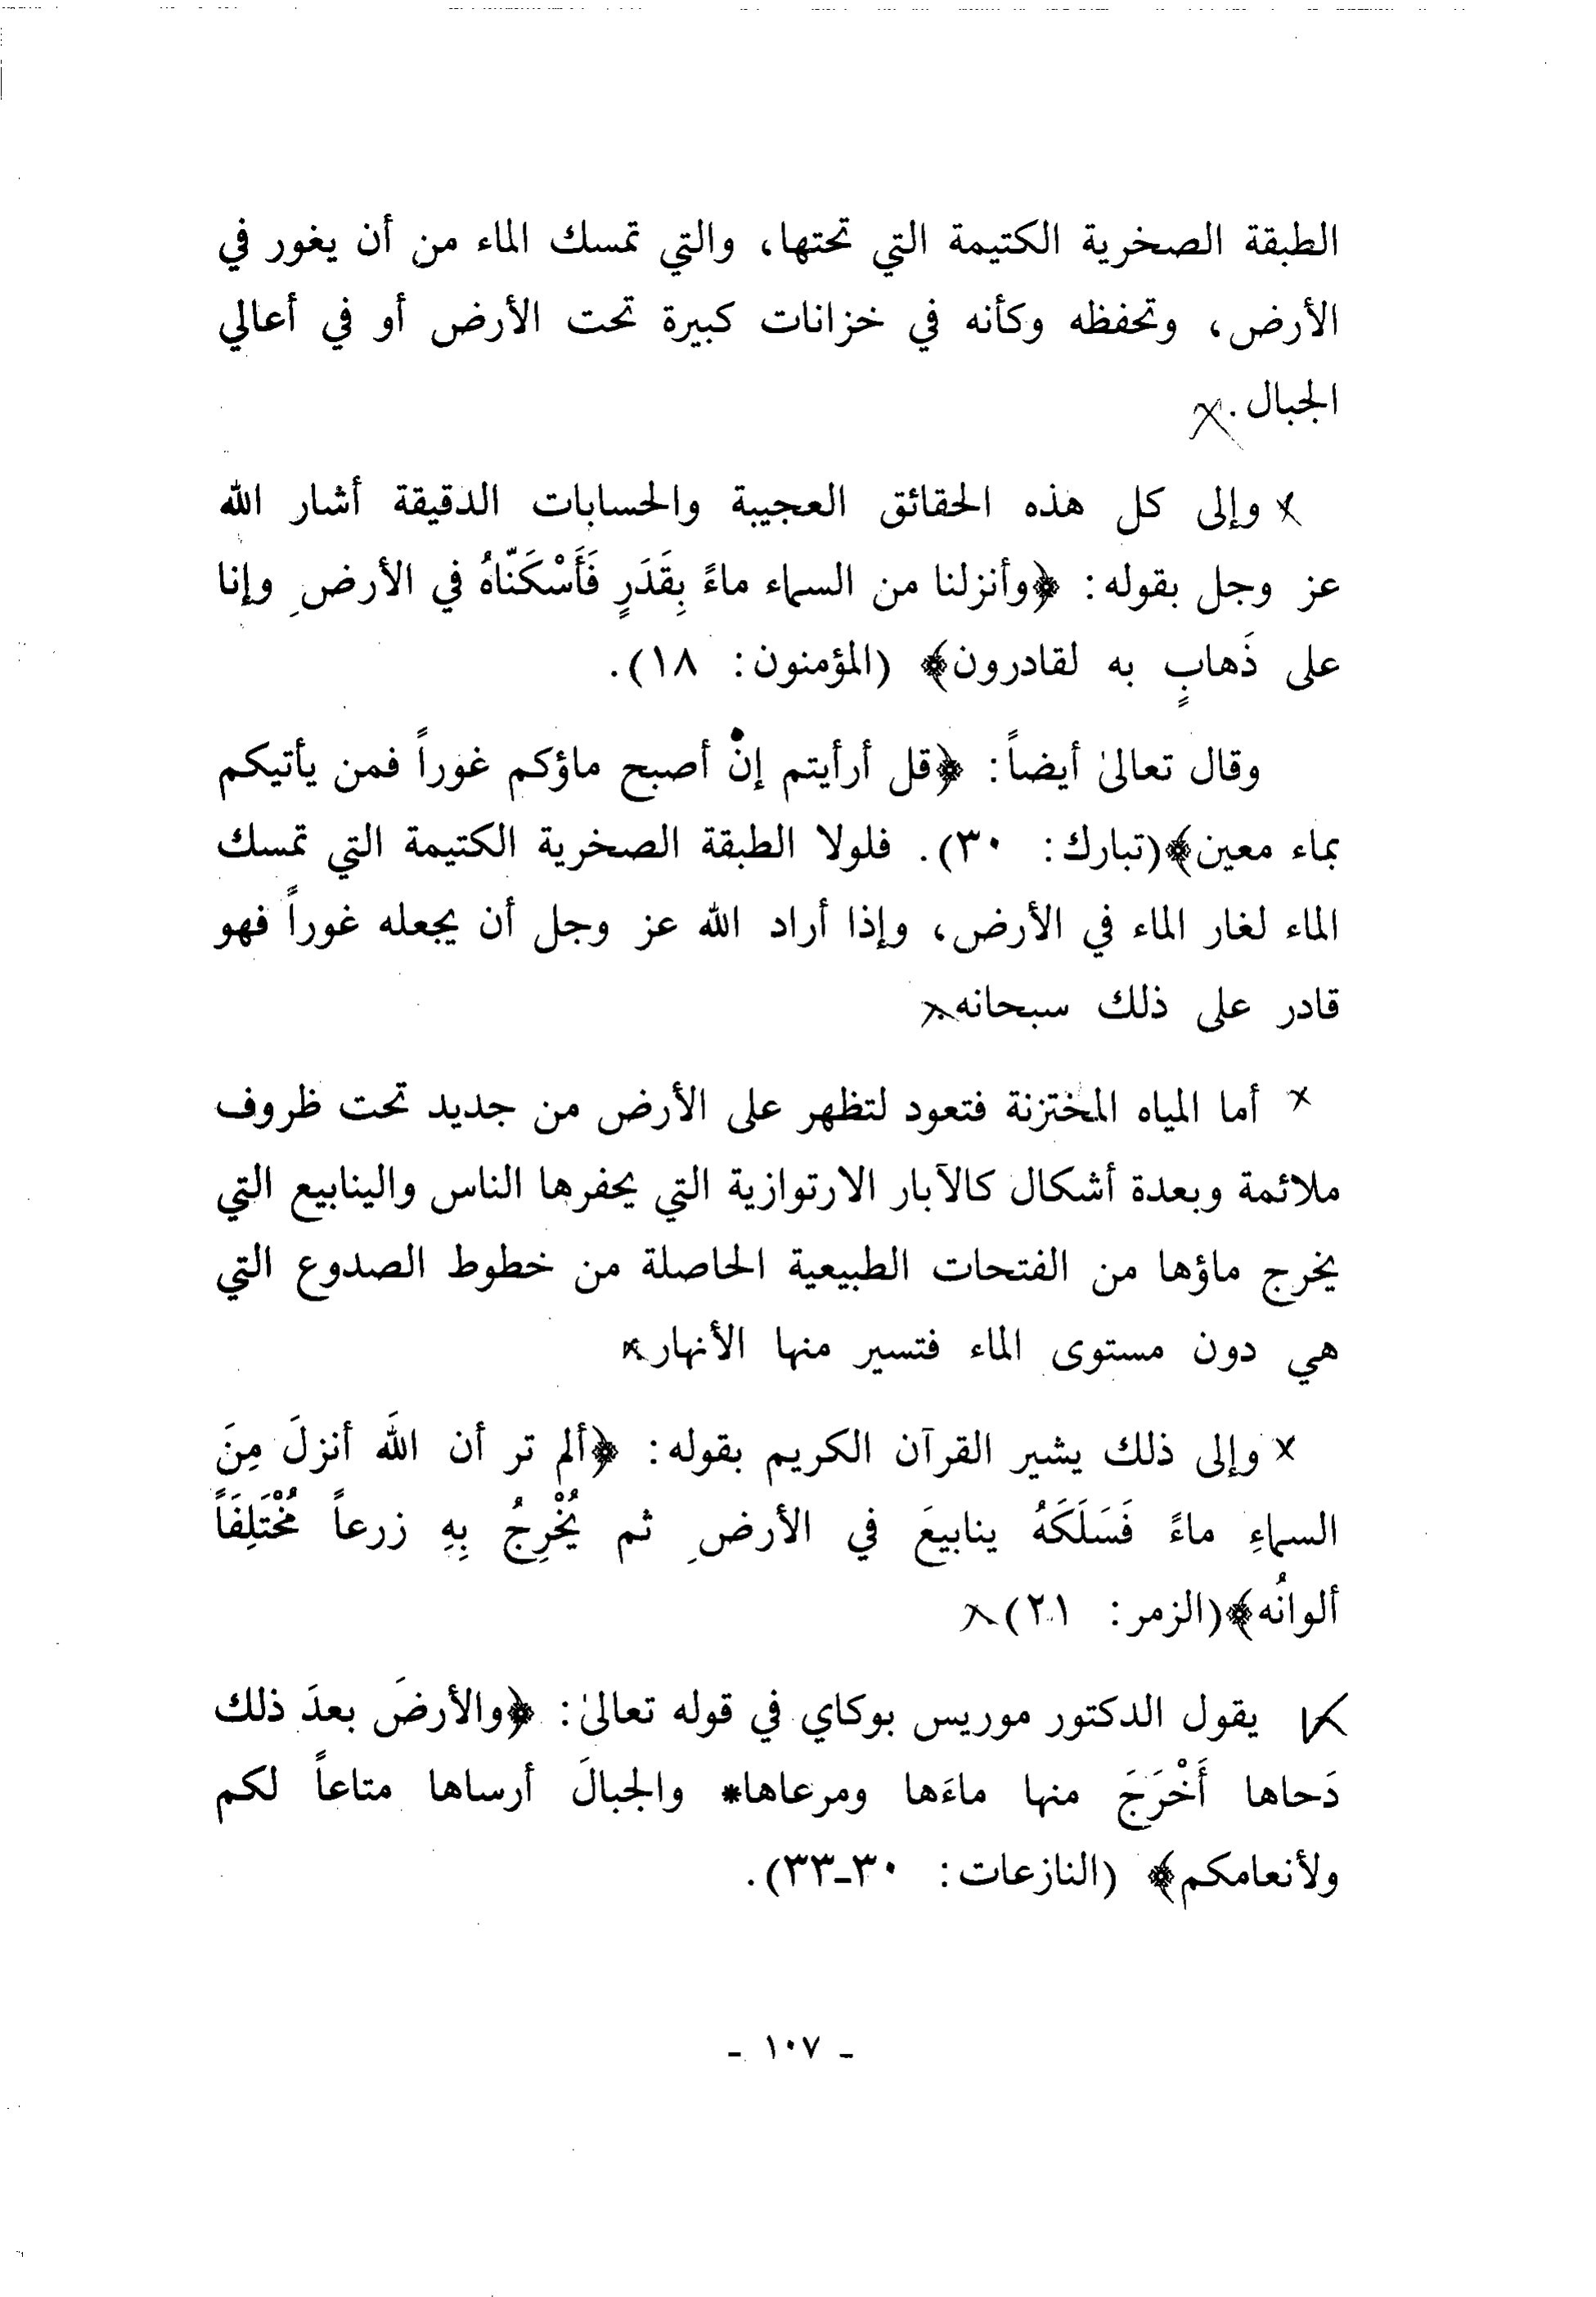 الطبقة الصخرية الكتيمة التي تحتها، والتي تمسك الماء من أن يغور في
الأرض، وتحفظه وكأنه في خزانات كبيرة تحت الأرض أو في أعالي
الجبال.
وإلى كل هذه الحقائق العجيبة والحسابات الدقيقة أشار الله
عز وجل بقوله: ﴿وأنزلنا من السماء ماءً بِقَدَرٍ فَأَسْكَنّاهُ في الأرضِ وإنا
على ذَهابٍ به لقادرون﴾ (المؤمنون: ١٨).
وقال تعالىٰ أيضاً: ﴿قل أرأيتم إنْ أصبح ماؤكم غوراً فمن يأتيكم
بماء معين﴾(تبارك: ٣٠). فلولا الطبقة الصخرية الكتيمة التي تمسك
الماء لغار الماء في الأرض، وإذا أراد الله عز وجل أن يجعله غوراً فهو
قادر على ذلك سبحانه.
أما المياه المختزنة فتعود لتظهر على الأرض من جديد تحت ظروف
ملائمة وبعدة أشكال كالآبار الارتوازية التي يحفرها الناس والينابيع التي
يخرج ماؤها من الفتحات الطبيعية الحاصلة من خطوط الصدوع التي
هي دون مستوى الماء فتسير منها الأنهار.
وإلى ذلك يشير القرآن الكريم بقوله: ﴿ألم تر أن اللهَ أنزلَ مِنَ
السماءِ ماءً فَسَلَكَهُ ينابيعَ في الأرضِ ثم يُخْرِجُ بِهِ زرعاً مُخْتَلِفَاً
ألوانُه﴾(الزمر: ٢١)
يقول الدكتور موريس بوكاي في قوله تعالىٰ: ﴿والأرضَ بعدَ ذلك
دَحاها أَخْرَجَ منها ماءَها ومرعاها* والجبالَ أرساها متاعاً لكم
ولأنعامكم﴾ (النازعات: ٣٠-٣٣).
- ١٠٧ -